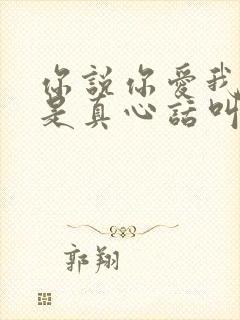 你說你愛我
是真心話叫
郭翔